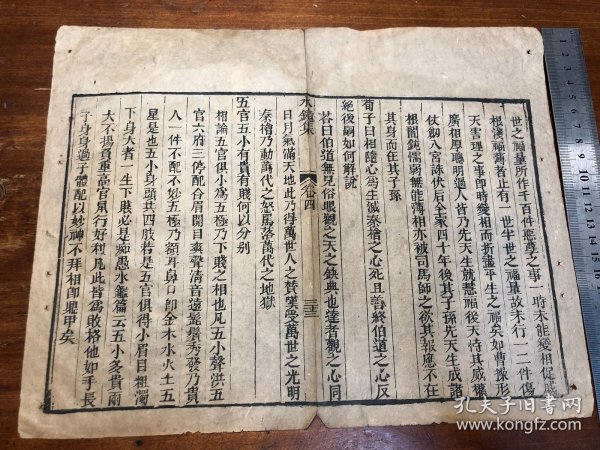 世之福量所作千百件惡辱之事一時未能變相促咸
根淺福薄者止有一世半世之福量故未行一二件傷
天害理之事即時變相而折盡平生之福矣如曹操形
廣相厚聰明過人皆乃先天生就慧福後天恃其威權
仗劒入宮誅伏后全家四十年後其子孫先天生成諸
根闇鈍懦弱無能薄相亦被司馬師之欲其報應不在
其身而在其子孫
荀子曰相隨心為生誠秦檜之心死且善終伯道之心反
絕後嗣如何解說
答曰伯道無兒俗眼觀之天之缺典也達者觀之心同
日月氣滿天地此乃得萬世人之贊嘆受萬世之光明
秦檜乃動萬代之怒罵落萬代之地獄
水鏡集
卷四
三三
五官五小有貴有賤何以分別
相論五官俱小為五極乃下賤之相也凡五小聲洪五
官六府三停配合眉開目爽聲清音遠髭鬢秀發乃貴
人一件不配不妙五極乃額耳鼻口卽金木水火土五
星是也五小身頭共四肢若是五官俱得小眉目粗濁
下身大者一生下賤必是痴愚水鑑篇云五小多貴兩
大不揚貴重高官鼠行好利凡此皆為敗格他如手長
子身身過子體配以妙神不拜相卽點甲矣
孔夫子旧书网
book.kongfz.com